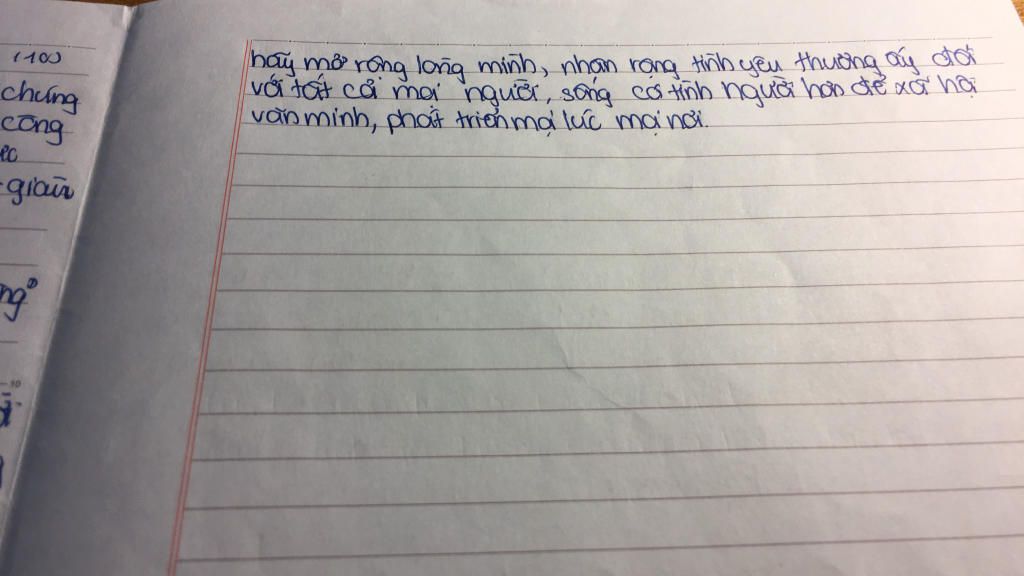 (100)
chúng
công
giàu
hãy mở rộng lòng mình, nhân rộng tình yêu thương ấy đối
với tất cả mọi người, sống có tình người hơn để xã hội
văn minh, phát triển mọi lúc mọi nơi.